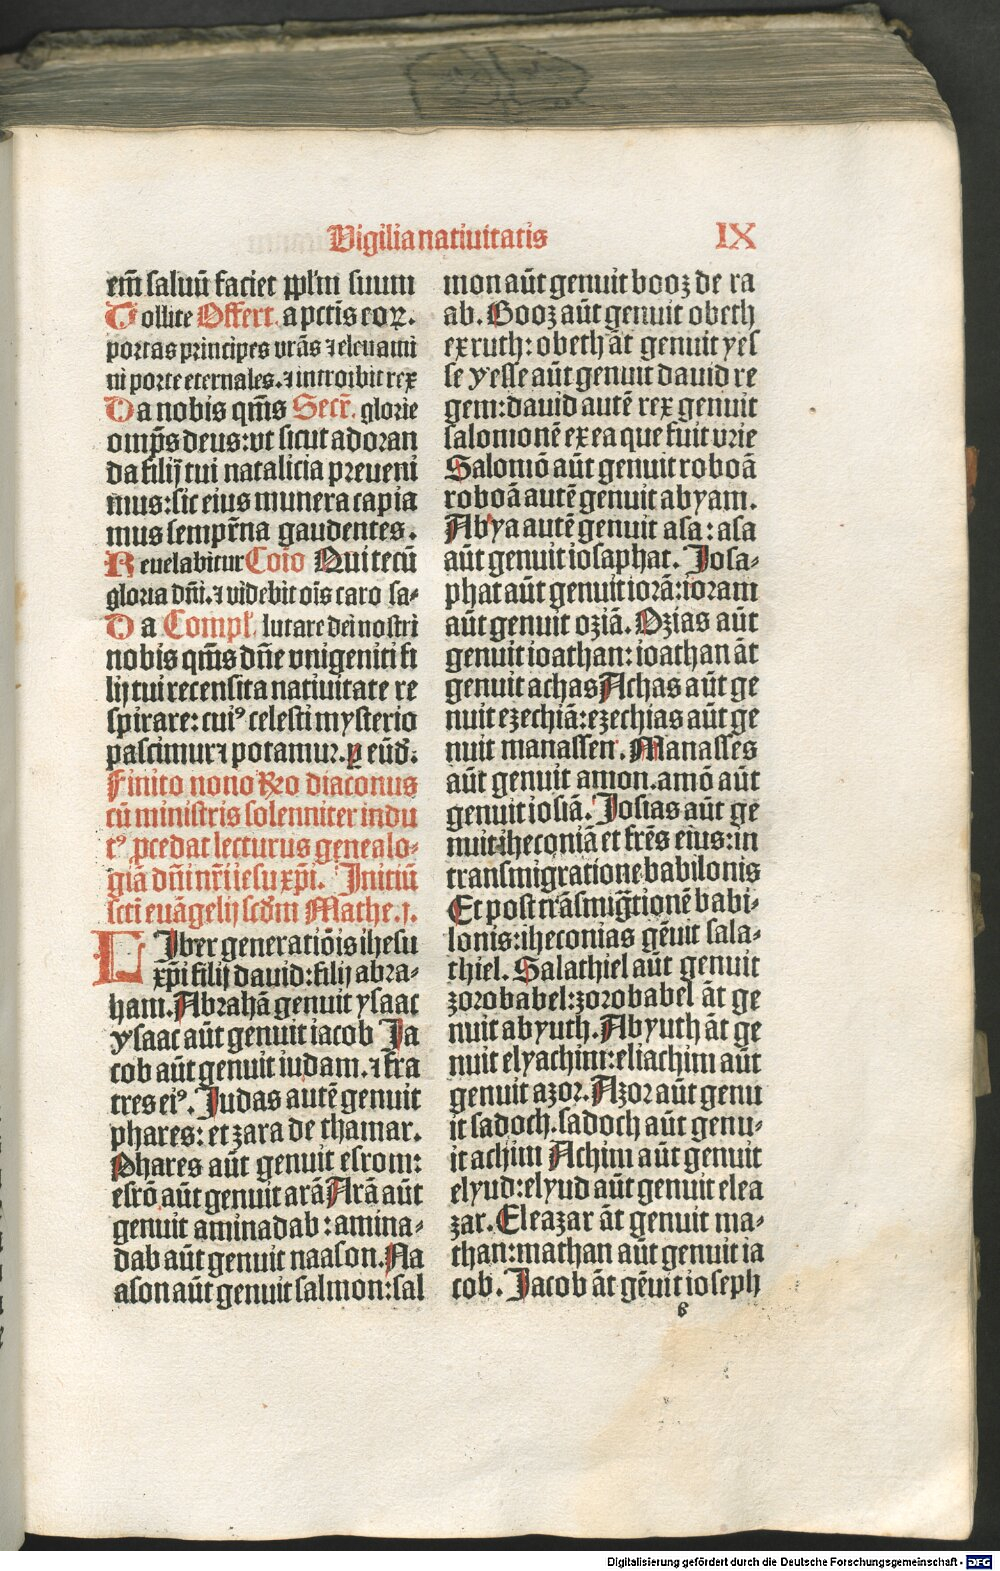 Vigilia natiuitatis
IX
em̄ saluū faciet ppl'm suum
Tollite Offert. a pctīs eoꝝ.
portas principes vrās ⁊ eleuami
ni porte eternales. ⁊ introibit rex
Da nobis qm̄s Secr̄. glorie
omp̄s deus: vt sicut adoran
da filij tui natalicia preueni
mus: sic eius munera capia
mus semp̄rna gaudentes.
Reuelabitur Cōio Qui tecū
gloria dn̄i. ⁊ videbit oīs caro sa⸗
Da Compl'. lutare dei nostri
nobis qm̄s dn̄e vnigeniti fi
lij tui recensita natiuitate re
spirare: cuiꝰ celesti mysterio
pascimur ⁊ potamur. ꝑ eūd.
Finito nono Rͦo diaconus
cū ministris solenniter indu
tꝰ ꝓcedat lecturus genealo⸗
giā dn̄i nr̄i iesu xp̄i. Initiū
scti euāgelij scd̄m Mathe.i.
LIber generatiōis ihesu
xp̄i filij dauid: filij abra⸗
ham. Abrahā genuit ysaac
ysaac aūt genuit iacob Ja
cob aūt genuit iudam. ⁊ fra
tres eiꝰ. Judas autē genuit
phares: et zara de thamar.
Phares aūt genuit esrom:
esrō aūt genuit arā Arā aūt
genuit aminadab: amina⸗
dab aūt genuit naason. Na
ason aūt genuit salmon: sal
mon aūt genuit booz de ra
ab. Booz aūt genuit obeth
ex ruth: obeth āt genuit yes
se yesse aūt genuit dauid re
gem: dauid autē rex genuit
salomonē ex ea que fuit vrie
Salomō aūt genuit roboā
roboā autē genuit abyam.
Abya autē genuit asa: asa
aūt genuit iosaphat. Josa⸗
phat aūt genuit iorā: ioram
aūt genuit oziā. Ozias aūt
genuit ioathan: ioathan āt
genuit achas Achas aūt ge
nuit ezechiā: ezechias aūt ge
nuit manassen. Manasses
aūt genuit amon. amō aūt
genuit iosiā. Josias aūt ge
nuit iheconiā et fr̄es eius: in
transmigratione babilonis
Et post trāsmigr̄tionē babi⸗
lonis: iheconias gēuit sala⸗
thiel. Salathiel aūt genuit
zorobabel: zorobabel āt ge
nuit abyuth. Abyuth āt ge
nuit elyachim: eliachim aūt
genuit azor. Azor aūt genu
it sadoch. sadoch aūt genu⸗
it achim Achim aūt genuit
elyud: elyud aūt genuit elea
zar. Eleazar āt genuit ma⸗
than: mathan aūt genuit ia
cob. Jacob āt gēuit ioseph
Digitalisierung gefördert durch die Deutsche Forschungsgemeinschaft - DFG